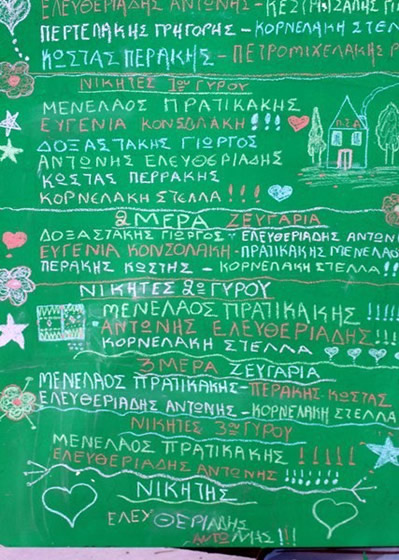 ΕΛΕΥΘΕΡΙΑΔΗΣ ΑΝΤΩΝΗΣ -
ΠΕΡΤΕΛΑΚΗΣ ΓΡΗΓΟΡΗΣ - ΚΟΡΝΕΛΑΚΗ ΣΤΕ
ΚΩΣΤΑΣ ΠΕΡΑΚΗΣ - ΠΕΤΡΟΜΙΧΕΛΑΚΗΣ Ρ
ΝΙΚΗΤΕΣ 1ου ΓΥΡΟΥ
ΜΕΝΕΛΑΟΣ ΠΡΑΤΙΚΑΚΗΣ
ΕΥΓΕΝΙΑ ΚΟΝΣΟΛΑΚΗ!!!
ΔΟΞΑΣΤΑΚΗΣ ΓΙΩΡΓΟΣ
ΑΝΤΩΝΗΣ ΕΛΕΥΘΕΡΙΑΔΗΣ
ΚΩΣΤΑΣ ΠΕΡΡΑΚΗΣ
ΚΟΡΝΕΛΑΚΗ ΣΤΕΛΛΑ!!!
2 ΜΕΡΑ ΖΕΥΓΑΡΙΑ
ΔΟΞΑΣΤΑΚΗΣ ΓΙΩΡΓΟΣ - ΕΛΕΥΘΕΡΙΑΔΗΣ ΑΝΤΩΝ
ΕΥΓΕΝΙΑ ΚΟΝΣΟΛΑΚΗ - ΠΡΑΤΙΚΑΚΗΣ ΜΕΝΕΛΑΟ
ΠΕΡΑΚΗΣ ΚΩΣΤΗΣ - ΚΟΡΝΕΛΑΚΗ ΣΤΕΛΛΑ!!
ΝΙΚΗΤΕΣ 2ου ΓΥΡΟΥ
ΜΕΝΕΛΑΟΣ ΠΡΑΤΙΚΑΚΗΣ!!!!!
ΑΝΤΩΝΗΣ ΕΛΕΥΘΕΡΙΑΔΗΣ!!!
ΚΟΡΝΕΛΑΚΗ ΣΤΕΛΛΑ
3 ΜΕΡΑ ΖΕΥΓΑΡΙΑ
ΜΕΝΕΛΑΟΣ ΠΡΑΤΙΚΑΚΗΣ - ΠΕΡΑΚΗΣ ΚΩΣΤΑΣ
ΕΛΕΥΘΕΡΙΑΔΗΣ ΑΝΤΩΝΗΣ - ΚΟΡΝΕΛΑΚΗ ΣΤΕΛΛΑ
ΝΙΚΗΤΕΣ 3ου ΓΥΡΟΥ
ΜΕΝΕΛΑΟΣ ΠΡΑΤΙΚΑΚΗΣ!!!!!
ΕΛΕΥΘΕΡΙΑΔΗΣ ΑΝΤΩΝΗΣ!!!!!!
ΝΙΚΗΤΗΣ
ΕΛΕΥΘΕΡΙΑΔΗΣ
ΑΝΤΩΝΗΣ!!!